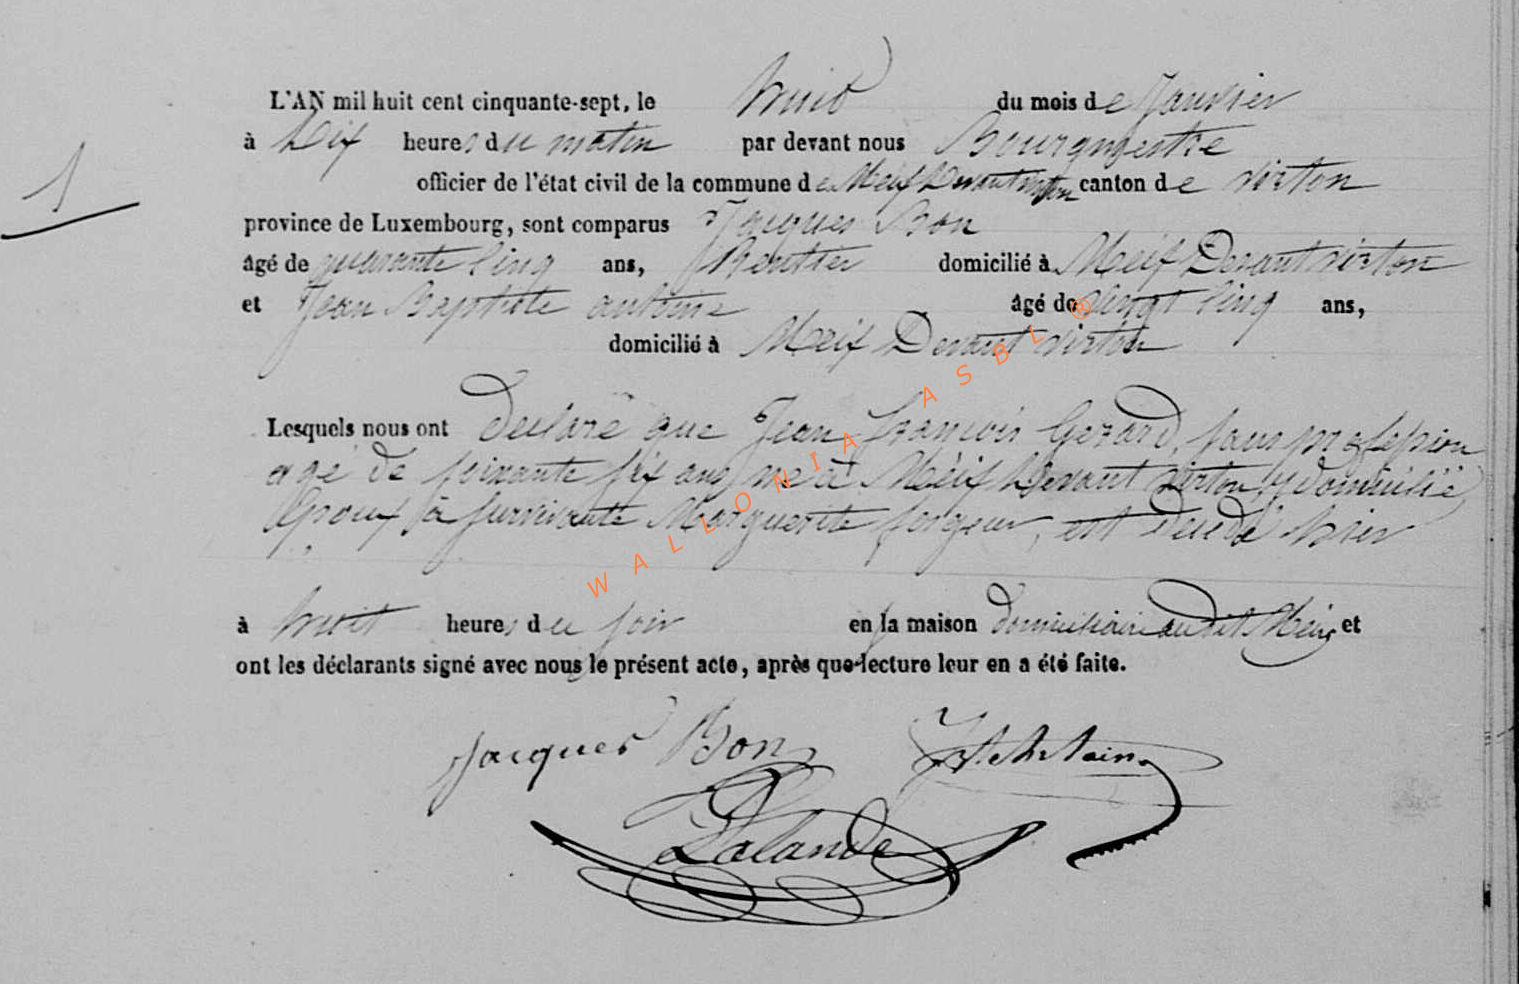 L'AN mil huit cent cinquante-sept, le huit du mois de Janvier
1
à Dix heures du matin par devant nous Bourgmestre
officier de l'état civil de la commune de Meix Devant virton canton de virton
province de Luxembourg, sont comparus Jacques Bon
âgé de quarante Cinq ans, Rentier domicilié à Meix Devant virton
et Jean Baptiste antoine âgé de vingt Cinq ans,
domicilié à Meix Devant virton
Lesquels nous ont declaré que Jean françois Gerard, sans profession
agé de soixante six ans, né à Meix Devant virton y domicilié,
Epoux à survivante Marguerite forgeur, est décédé hier
à huit heures du soir en sa maison domiciliaire audit Meix et
ont les déclarants signé avec nous le présent acte, après que lecture leur en a été faite.
Jacques Bon
Lalande
WALLONIA ASBL ®